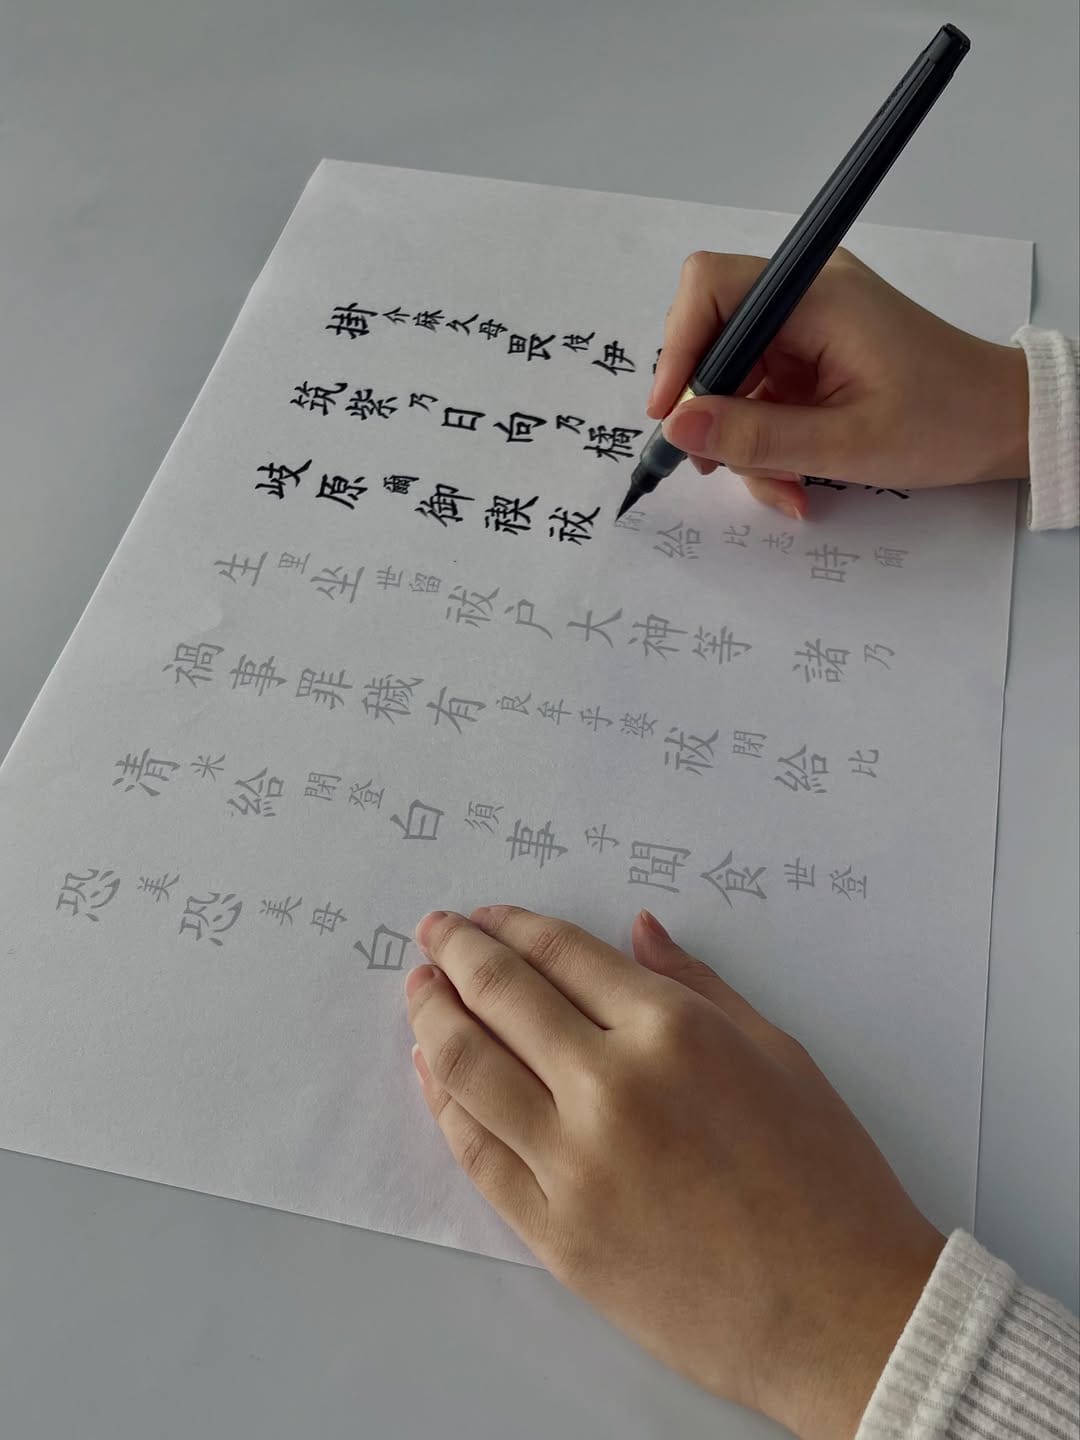 掛介麻久母畏伎伊
筑紫乃日向乃橘
岐原爾御禊祓閇給比志時爾
生里坐世留祓戸大神等諸乃
禍事罪穢有良牟乎婆祓閇給比
清米給閇登白須事乎聞食世登
恐美恐美母白